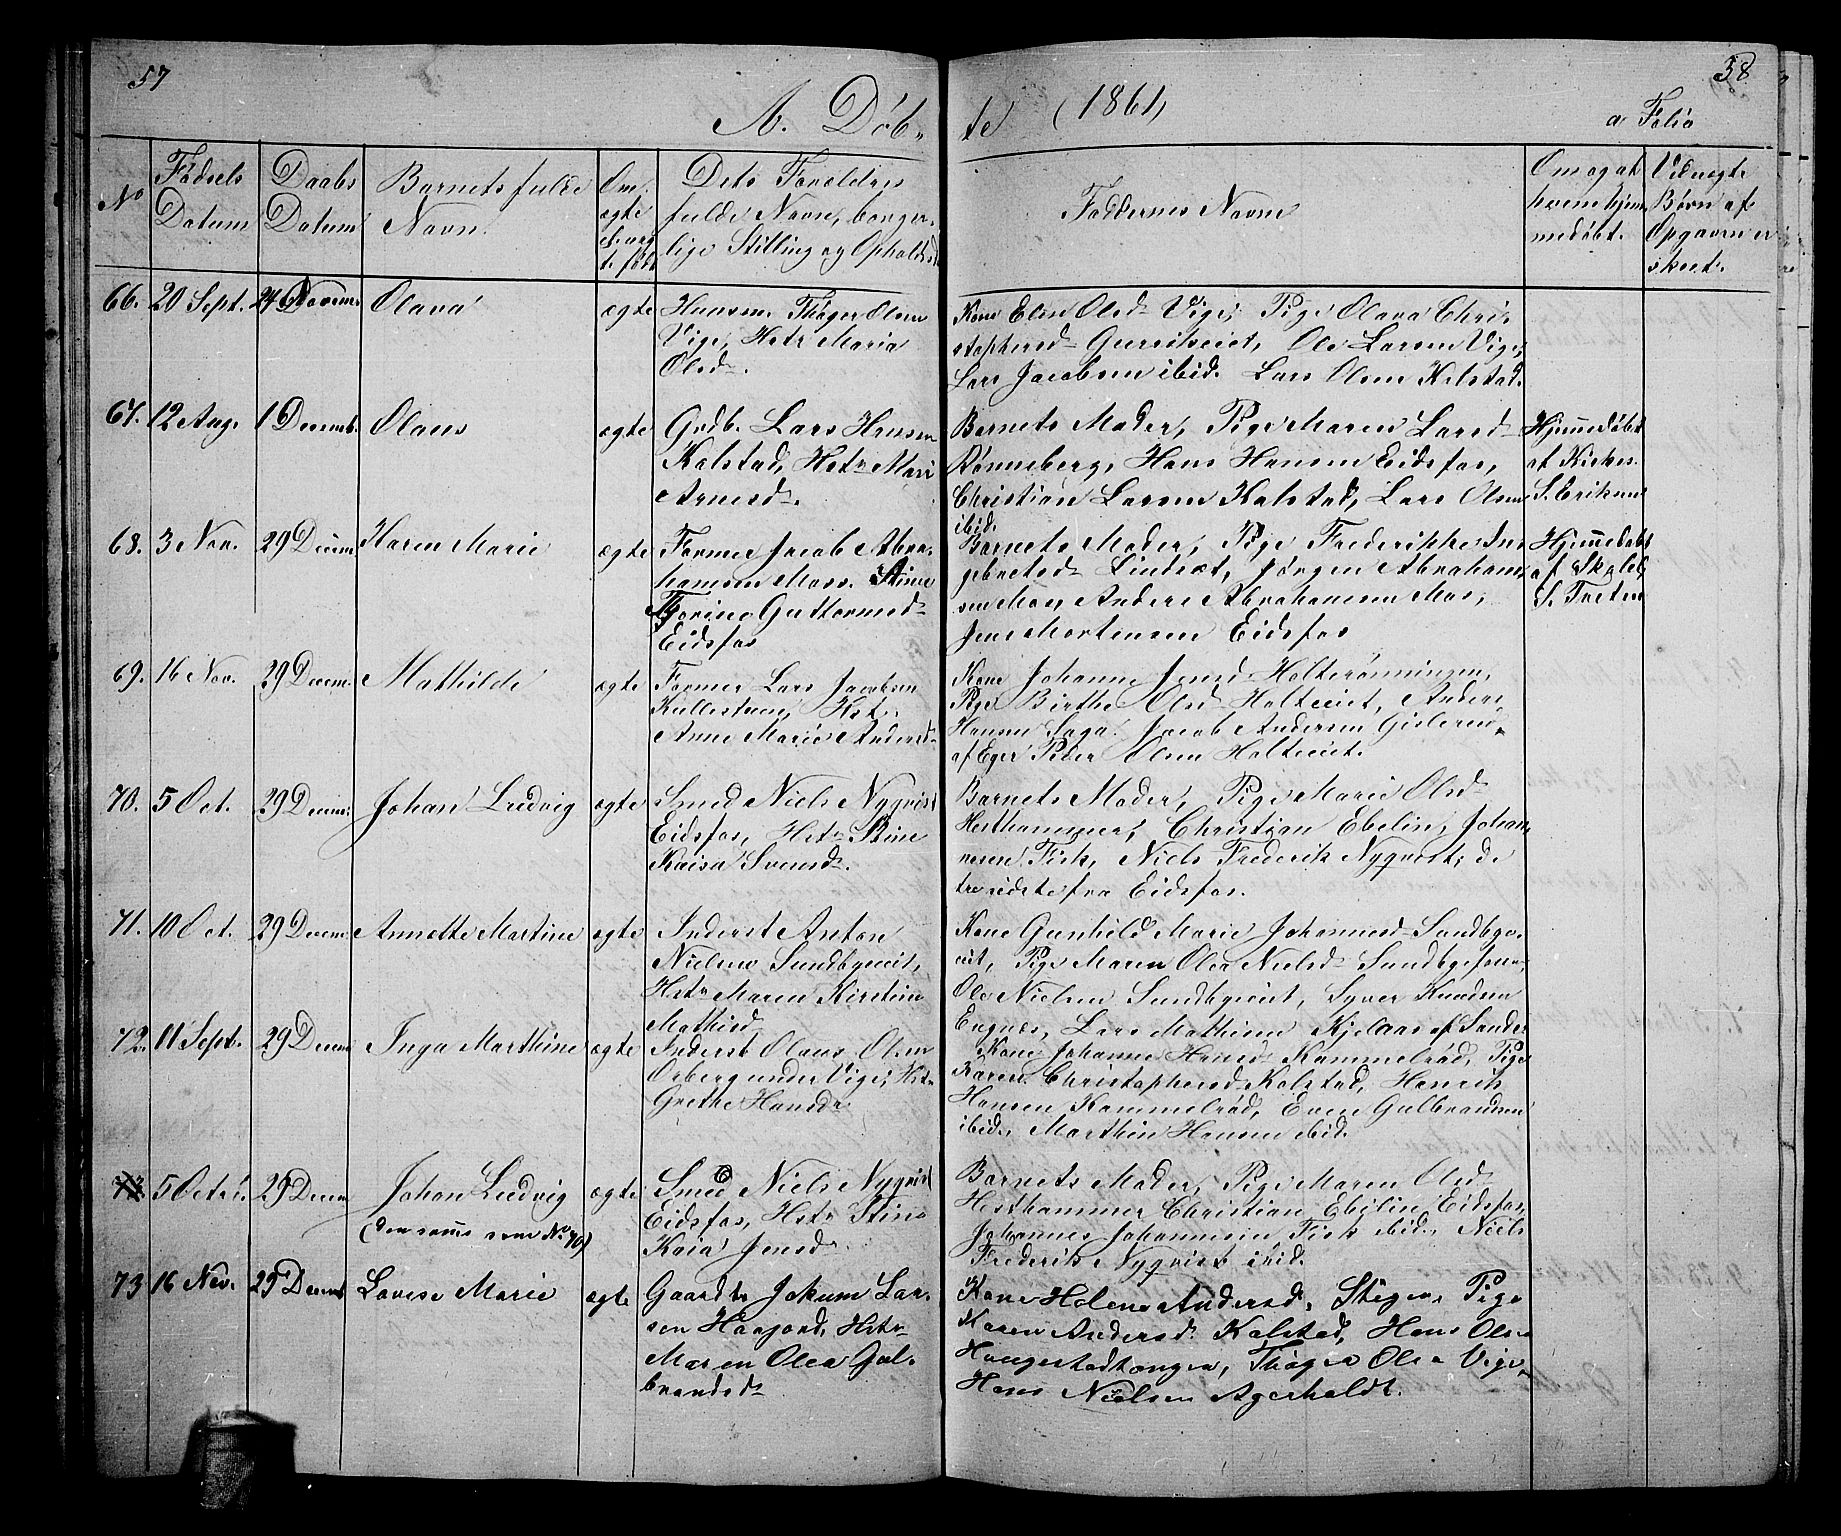 57
58
A. Døb-
te (1861)
a Folio
No
Fødsels Datum
Daabs Datum
Barnets fulde Navn.
Om ægte el. uægte født
Dets Forældres fulde Navn, borgerlige Stilling og Opholdsst.
Faddernes Navne
Om og af hvem hjemmedøbt.
Ved uægte Børn af Opgaven er skeet.
66. 20 Sept. 24 Novem. Olava ægte
Huusm. Thøger Olsen
Vige, Hstr Maria
Olsd.
Kone Elen Olsd Vige, Pige Olava Chri-
stophersd Gureiseiet, Ole Larsen Vige,
Lars Jacobsen ibid. Lars Olsen Kalstad.
67. 12 Aug. 1 Decemb. Olaus ægte
Gdb. Lars Hansen
Kalstad, Hstr Mari
Arnesd.
Barnets Moder, Pige Maren Larsd
Rønneberg, Hans Hansen Eidsfos,
Christian Larsen Kalstad, Lars Olsen
ibid.
Hjemmedøbt
af Kirkes.
S. Eriksen
68. 3 Nov. 29 Decem. Karen Marie ægte
Former Jacob Abra-
hamsen Moss. Stine
Torine Guttormsd
Eidsfos
Barnets Moder, Pige Frederikke In-
gebretsd Lindset, Jørgen Abraham-
sen Mos, Anders Abrahamsen Mos,
Jens Mortensen Eidsfos
Hjemmedøbt
af Skolel.
S. Treten
69. 16 Nov. 29 Decem. Mathilde ægte
Former Lars Jacobsen
Kullestuen, Hst.
Anne Marie Andersd
Kone Johanne Jensd Holterønningen,
Pige Birthe Olsd Holteeiet, Anders
Hansen Saga. Jacob Andersen Gislerud
af Eger Peder Olsen Holteeiet.
70. 5 Oct. 29 Decem. Johan Ludvig ægte
Smed Niels Nyqvist
Eidsfos, Hstr Stine
Kaisa Svensd.
Barnets Moder, Pige Marie Olsd
Hesthammer, Christian Ebelin, Johan-
nesen Fisk, Niels Frederik Nyqvist, de
tre sidste fra Eidsfos.
71. 10 Oct. 29 Decem. Annette Martine ægte
Inderst Anton
Nielsen Sundbyeiet,
Hstr Maren Kirstine
Mathisd
Kone Gunhild Marie Johannesd Sundbye-
eiet, Pige Maren Olea Nielsd Sundbyeiet,
Ole Nielsen Sundbyeiet, Syver Knudsen
Engnæs, Lars Mathisen Kjelaas af Sande
72. 11 Sept. 29 Decem Inga Marthine ægte
Inderst Olaus Olsen
Orberg under Vige, Hst.
Grethe Hansd
Kone Johanne Hansd Kammelrød, Pige
Karen Christophersd Kalstad, Henrik
Hansen Kammelrød, Even Gulbrandsen
ibid., Marthin Hansen ibid.
73 5 Octr. 29 Decem Johan Ludvig ægte
(den samme som No 70)
Smed Niels Nyqvist
Eidsfos, Hstr Stine
Kaia Jensd.
Barnets Moder, Pige Maren Olsd
Hesthammer Christian Ebelin Eidsfos,
Johannes Johannesen Fisk ibid., Niels
Frederik Nyqvist ibid.
73 16 Nov. 29 Decemb Lovise Marie ægte
Gaardbr Jokum Lar-
sen Haajord, Hstr
Maren Olea Gul-
brandsd
Kone Helene Andersd. Stigen, Pige
Karen Andersd. Kalstad, Hans Olsen
Haugestadtangen, Thøger Olsen Vige,
Hans Nielsen Agerholdt.